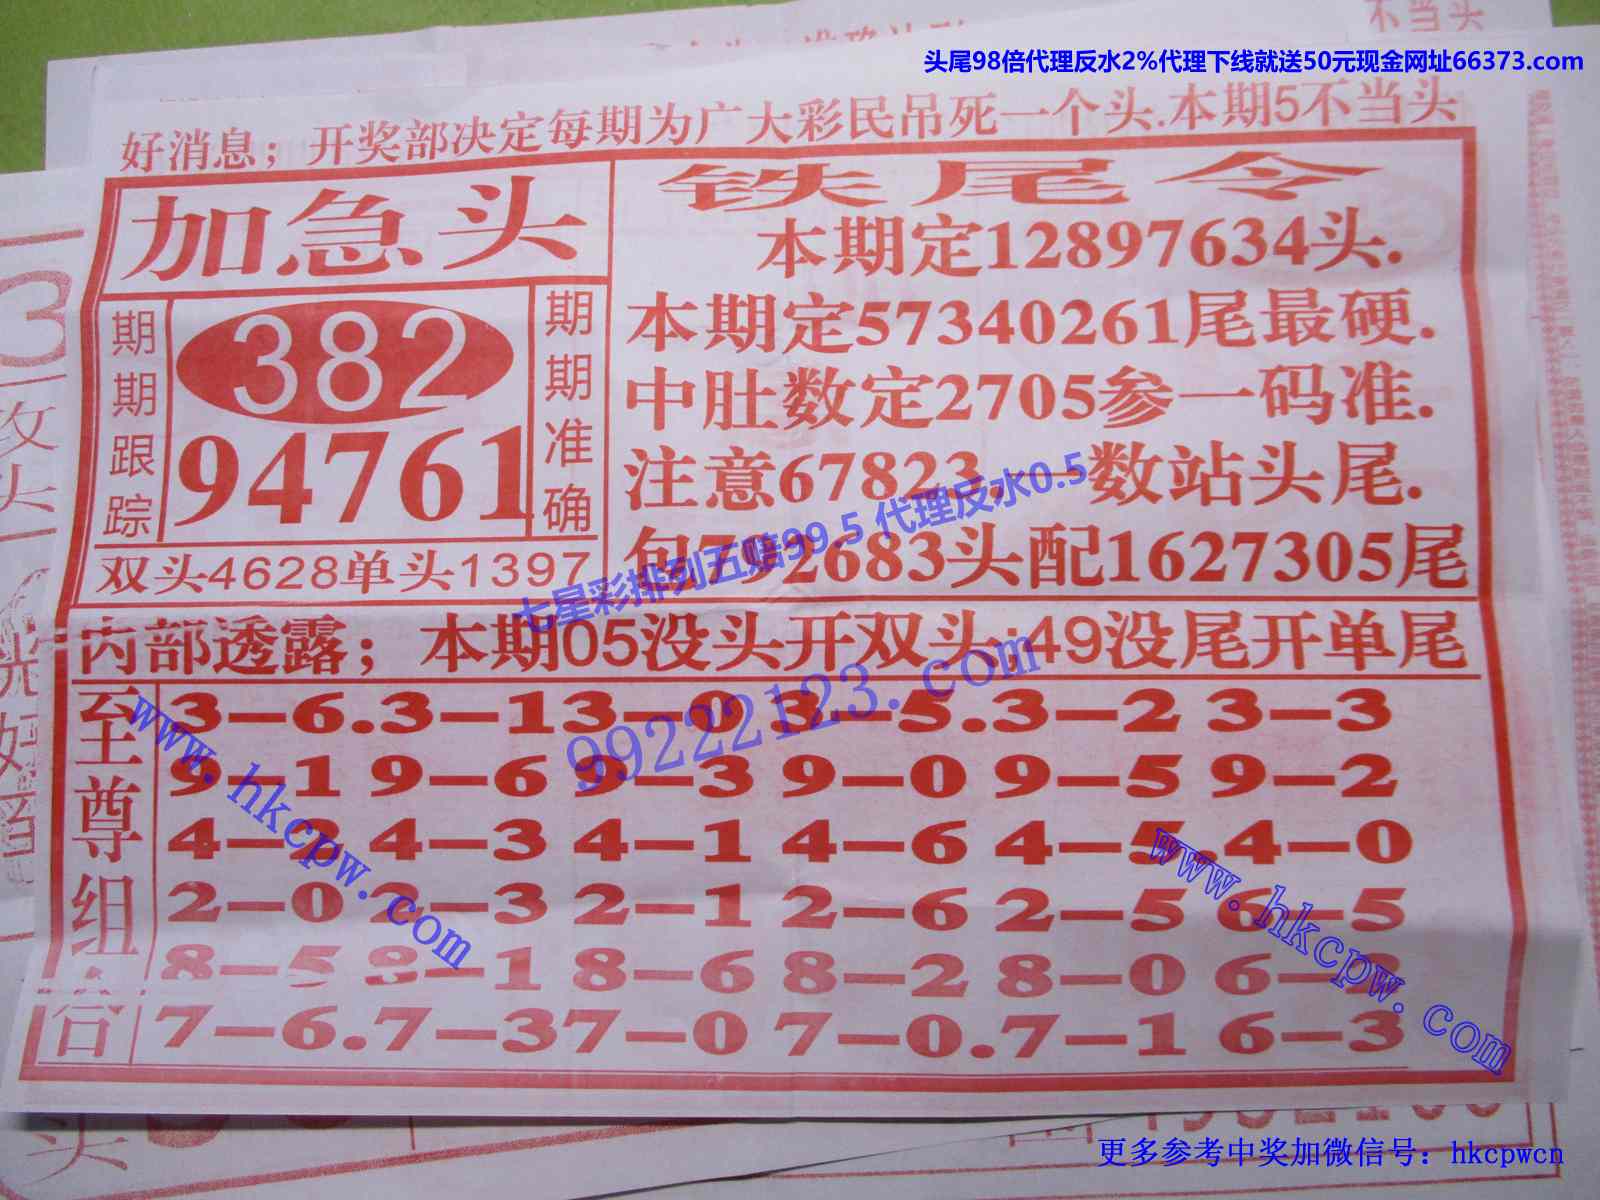 不当头
头尾98倍代理反水2%代理下线就送50元现金网址66373.com
好消息；开奖部决定每期为广大彩民吊死一个头.本期5不当头
加急头
期期跟踪
382
94761
期期准确
双头4628单头1397
铁尾令
本期定12897634头.
本期定57340261尾最硬.
中肚数定2705参一码准.
注意67823,一数站头尾.
包792683头配1627305尾
七星彩排列五赔99.5 代理反水0.5
内部透露；本期05没头开双头;49没尾开单尾
99222123.com
至尊组合
3-6.3-13-0 3-5.3-2 3-3
9-1 9-6 9-3 9-0 9-5 9-2
4-2 4-3 4-1 4-6 4-5.4-0
2-0 2-3 2-1 2-6 2-5 6-5
8-5 8-1 8-6 8-2 8-0 6-2
7-6.7-37-0 7-0.7-1 6-3
www.hkcpw.com
www.hkcpw.com
3
攻
头
好
头
更多参考中奖加微信号：hkcpwcn